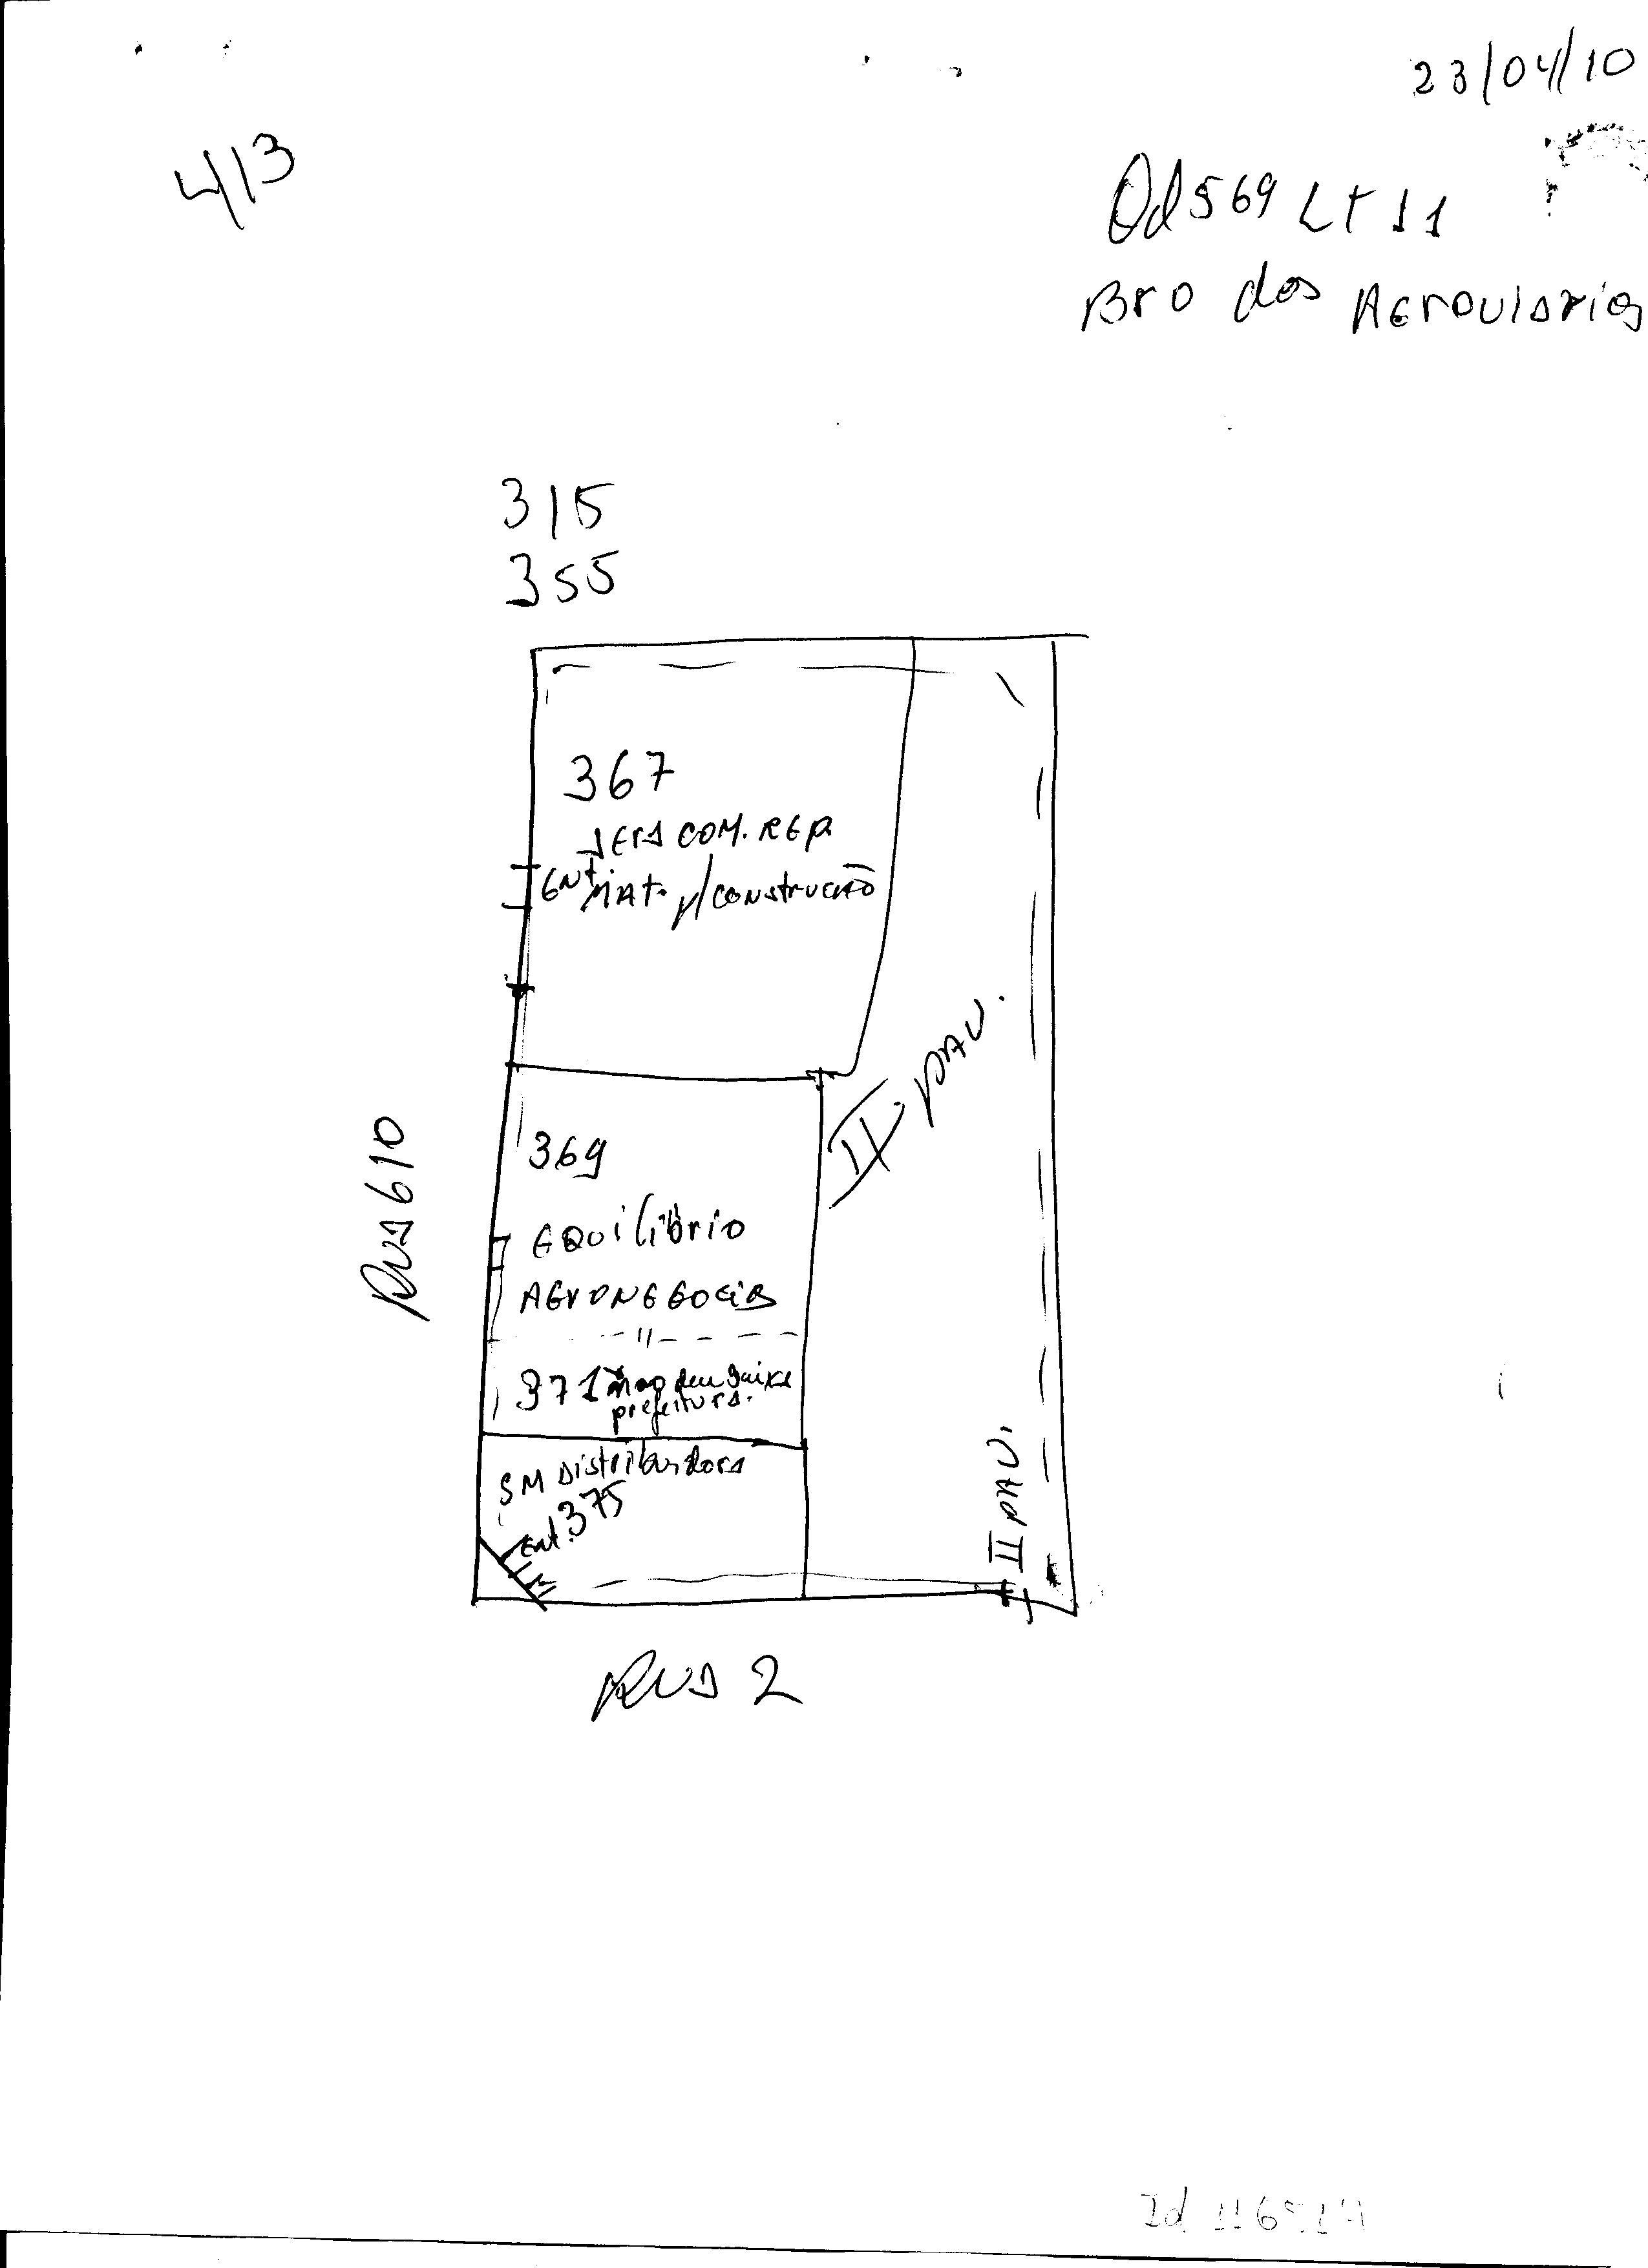 23/04/10
413
Qd 569 Lt 11
Bro dos Aeroviarios
315
355
367
COM. REP.
Ent MAt. p/ construção
II pAV.
369
Rua 610
EQuilibrio
AGroNEGocios
371 não deu baixa
prefeitura.
SM Distribuidora
Ent. 375
II pAV.
Rua 2